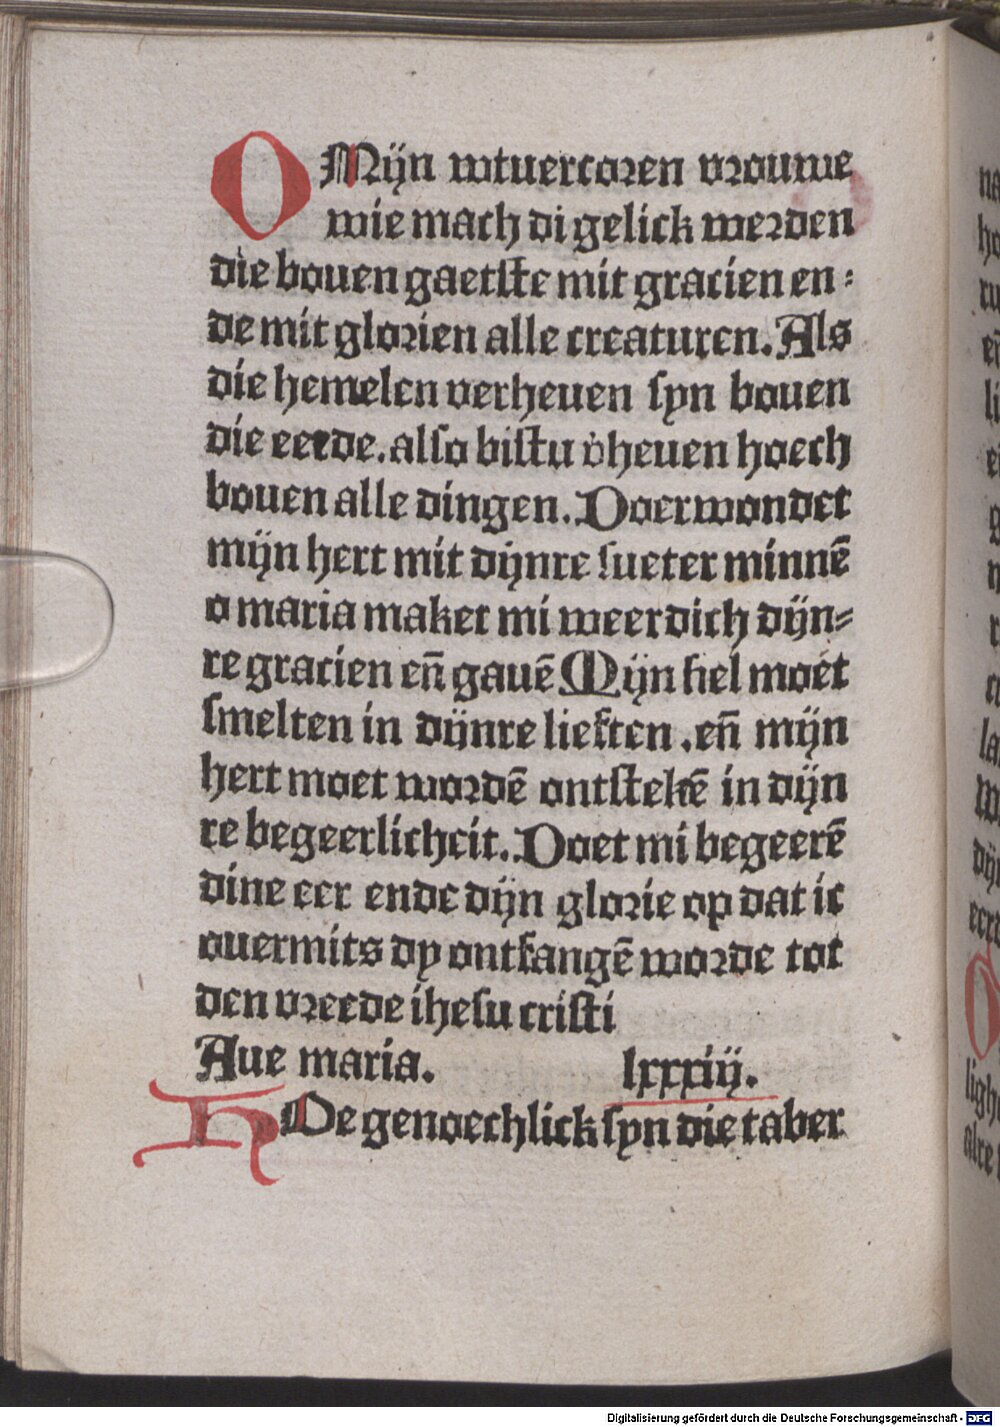 O Mijn wtuercoren vrouwe
wie mach di gelick werden
die bouen gaetste mit gracien en⸗
de mit glorien alle creaturen. Als
die hemelen verheuen syn bouen
die eerde. also bistu v̇heuen hoech
bouen alle dingen. Doerwondet
mijn hert mit dijnre sueter minnē
o maria maket mi weerdich dijn⸗
re gracien en̄ gauē Mijn siel moet
smelten in dijnre liefften .en̄ mijn
hert moet wordē ontstekē in dijn
re begeerlicheit. Doet mi begeerē
dine eer ende dijn glorie op dat ic
ouermits dy ontfangē worde tot
den vreede ihesu cristi
Aue maria. lxxxiij.
HOe genoechlick syn die taber
Digitalisierung gefördert durch die Deutsche Forschungsgemeinschaft - DFG